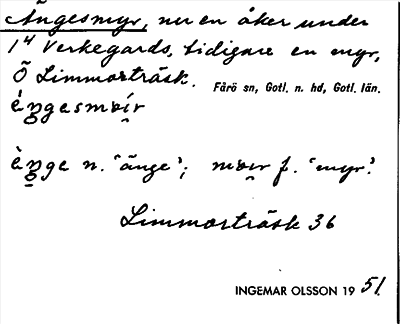 Ängesmyr, nu en åker under
1⁴ Verkegards, tidigare en myr,
Ö Limmorträsk. Fårö sn, Gotl. n. hd, Gotl. län.
èŋgesmœir
èŋge n. 'änge'; mœir f. 'myr'.
Limmorträsk 36
INGEMAR OLSSON 1951.